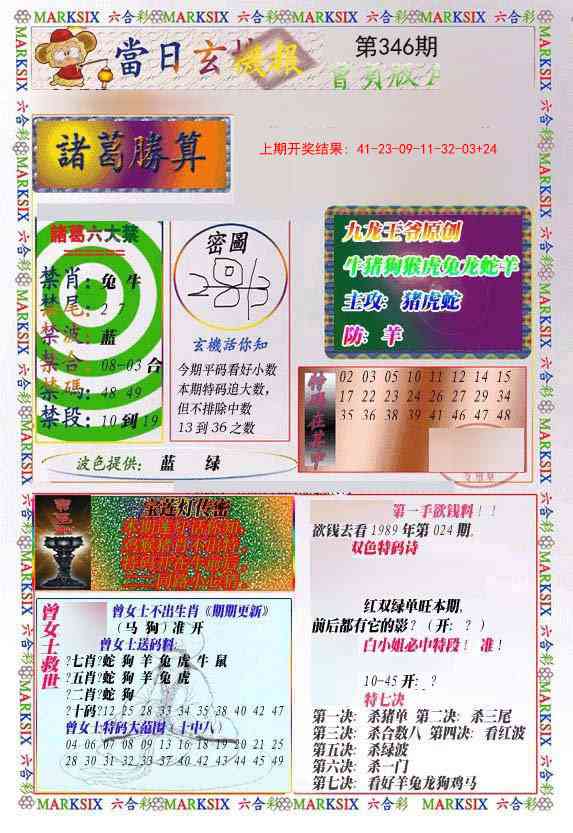 MARKSIX 六合彩 MARKSIX 六合彩 MARKSIX 六合彩 MARKSIX 六合彩 MARKSIX 六合彩
當日玄機報
第346期
諸葛勝算
上期开奖结果: 41-23-09-11-32-03+24
諸葛六大禁
禁肖: 兔 牛
禁尾: 2 7
禁波: 蓝
禁合: 08-03 合
禁碼: 48 49
禁段: 10 到 19
密圖
玄機活你知
今期平码看好小数
本期特码追大数,
但不排除中数
13 到 36 之数
九龙王爷原创
牛猪狗猴虎兔龙蛇羊
主攻: 猪虎蛇
防: 羊
特码在其中
02 03 05 10 11 12 14 15
17 22 26 27 21 29 33 34
35 36 38 39 41 46 47 48
波色提供: 蓝 绿
宝莲灯传密
第一手欲钱料!!
欲钱去看 1989 年第 024 期.
双色特码诗
红双绿单旺本期,
前后都有它的影? (开: ? )
白小姐必中特段! 准!
10-45 开: ?
特七决
第一决: 杀猪单 第二决: 杀三尾
第三决: 杀合数八 第四决: 看红波
第五决: 杀绿波
第六决: 杀一门
第七决: 看好羊兔龙狗鸡马
曾女士救世
曾女士不出生肖《期期更新》
(马 狗) 准 开
曾女士送码料:
?七肖?蛇 狗 羊 兔 虎 牛 鼠
?五肖?蛇 狗 羊 兔 虎
?二肖?蛇 狗
?十码?12 25 28 33 34 35 38 40 42 47
曾女士特码大范围 (十中八)
04 06 07 08 09 13 16 18 19 20 21 25
28 30 31 32 33 37 36 39 42 43 44 45 49
MARKSIX 六合彩 MARKSIX 六合彩 MARKSIX 六合彩 MARKSIX 六合彩 MARKSIX 六合彩